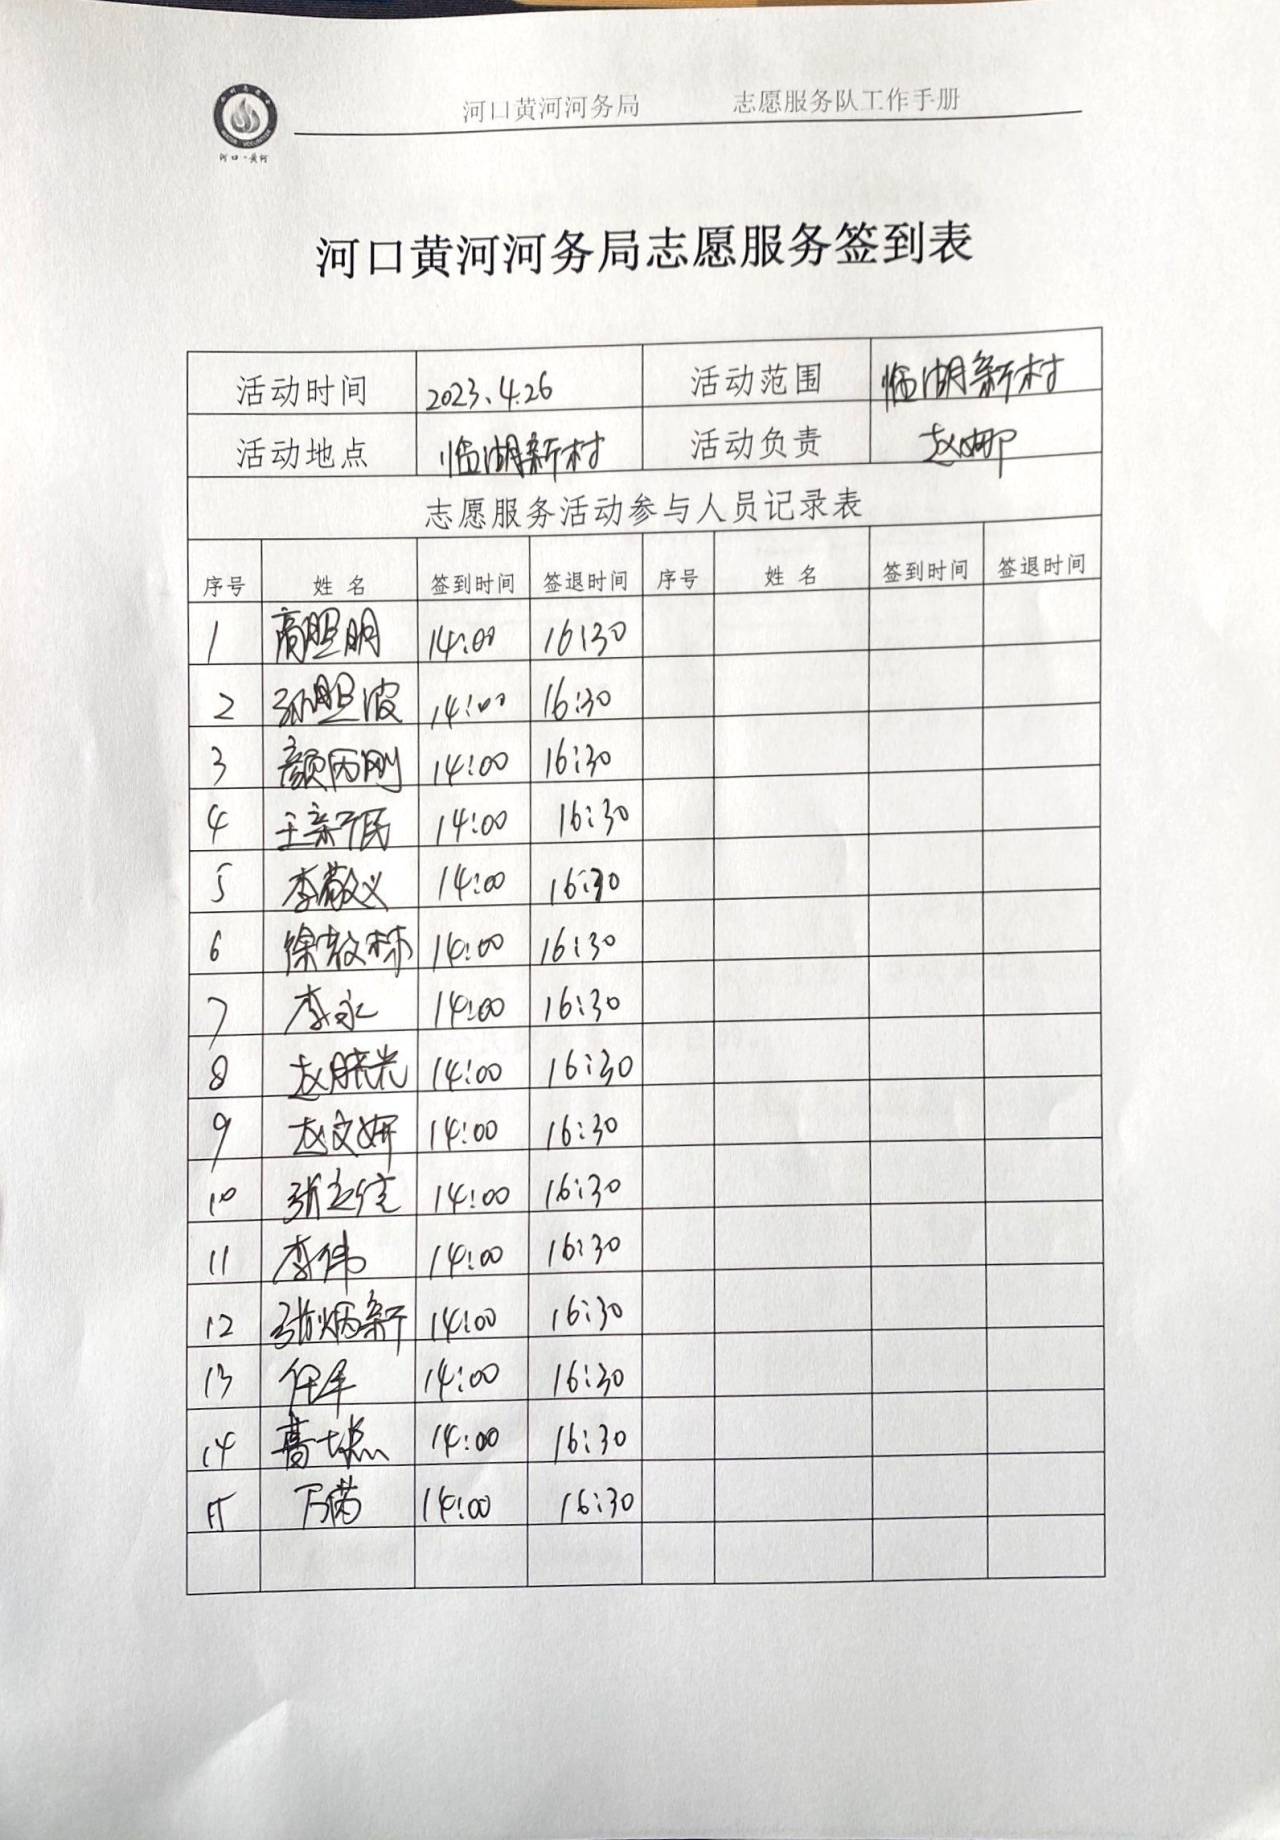 河口·黄河
河口黄河河务局 志愿服务队工作手册
河口黄河河务局志愿服务签到表
活动时间 2023.4.26 活动范围 临湖新村
活动地点 临湖新村 活动负责 赵娜
志愿服务活动参与人员记录表
序号 姓名 签到时间 签退时间 序号 姓名 签到时间 签退时间
1 商照明 14:00 16:30
2 孙照波 14:00 16:30
3 颜丙刚 14:00 16:30
4 王新民 14:00 16:30
5 李敬义 14:00 16:30
6 徐教林 14:00 16:30
7 李永 14:00 16:30
8 赵晓光 14:00 16:30
9 赵文妍 14:00 16:30
10 张立信 14:00 16:30
11 李伟 14:00 16:30
12 张炳新 14:00 16:30
13 任军 14:00 16:30
14 14:00 16:30
15 万满 14:00 16:30